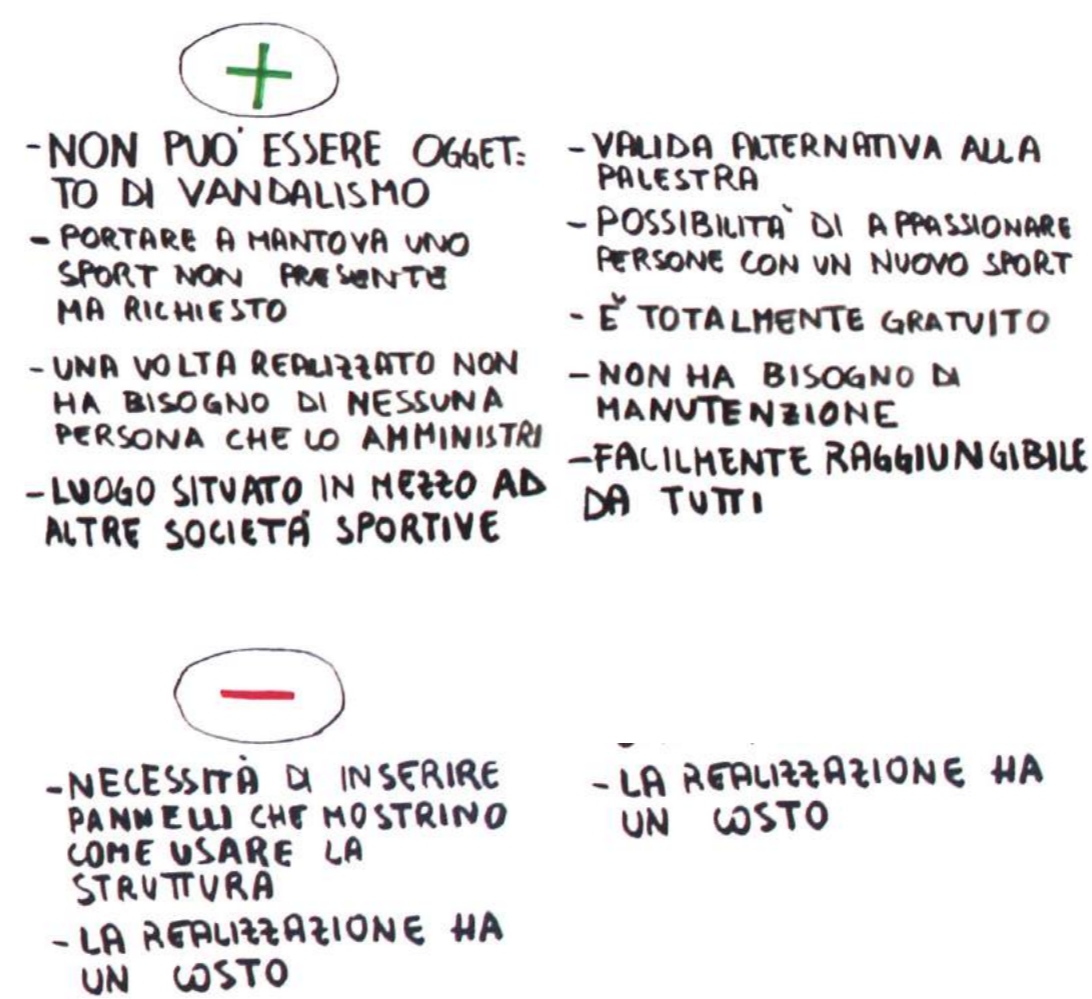 +
-NON PUO' ESSERE OGGET=
TO DI VANDALISMO
- PORTARE A MANTOVA UNO
SPORT NON PRESENTE
MA RICHIESTO
- UNA VOLTA REALIZZATO NON
HA BISOGNO DI NESSUNA
PERSONA CHE LO AMMINISTRI
- LUOGO SITUATO IN MEZZO AD
ALTRE SOCIETÀ SPORTIVE
- VALIDA ALTERNATIVA ALLA
PALESTRA
- POSSIBILITÀ DI APPASSIONARE
PERSONE CON UN NUOVO SPORT
- È TOTALMENTE GRATUITO
- NON HA BISOGNO DI
MANUTENZIONE
-FACILMENTE RAGGIUNGIBILE
DA TUTTI
-
-NECESSITÀ DI INSERIRE
PANNELLI CHE MOSTRINO
COME USARE LA
STRUTTURA
- LA REALIZZAZIONE HA
UN COSTO
- LA REALIZZAZIONE HA
UN COSTO